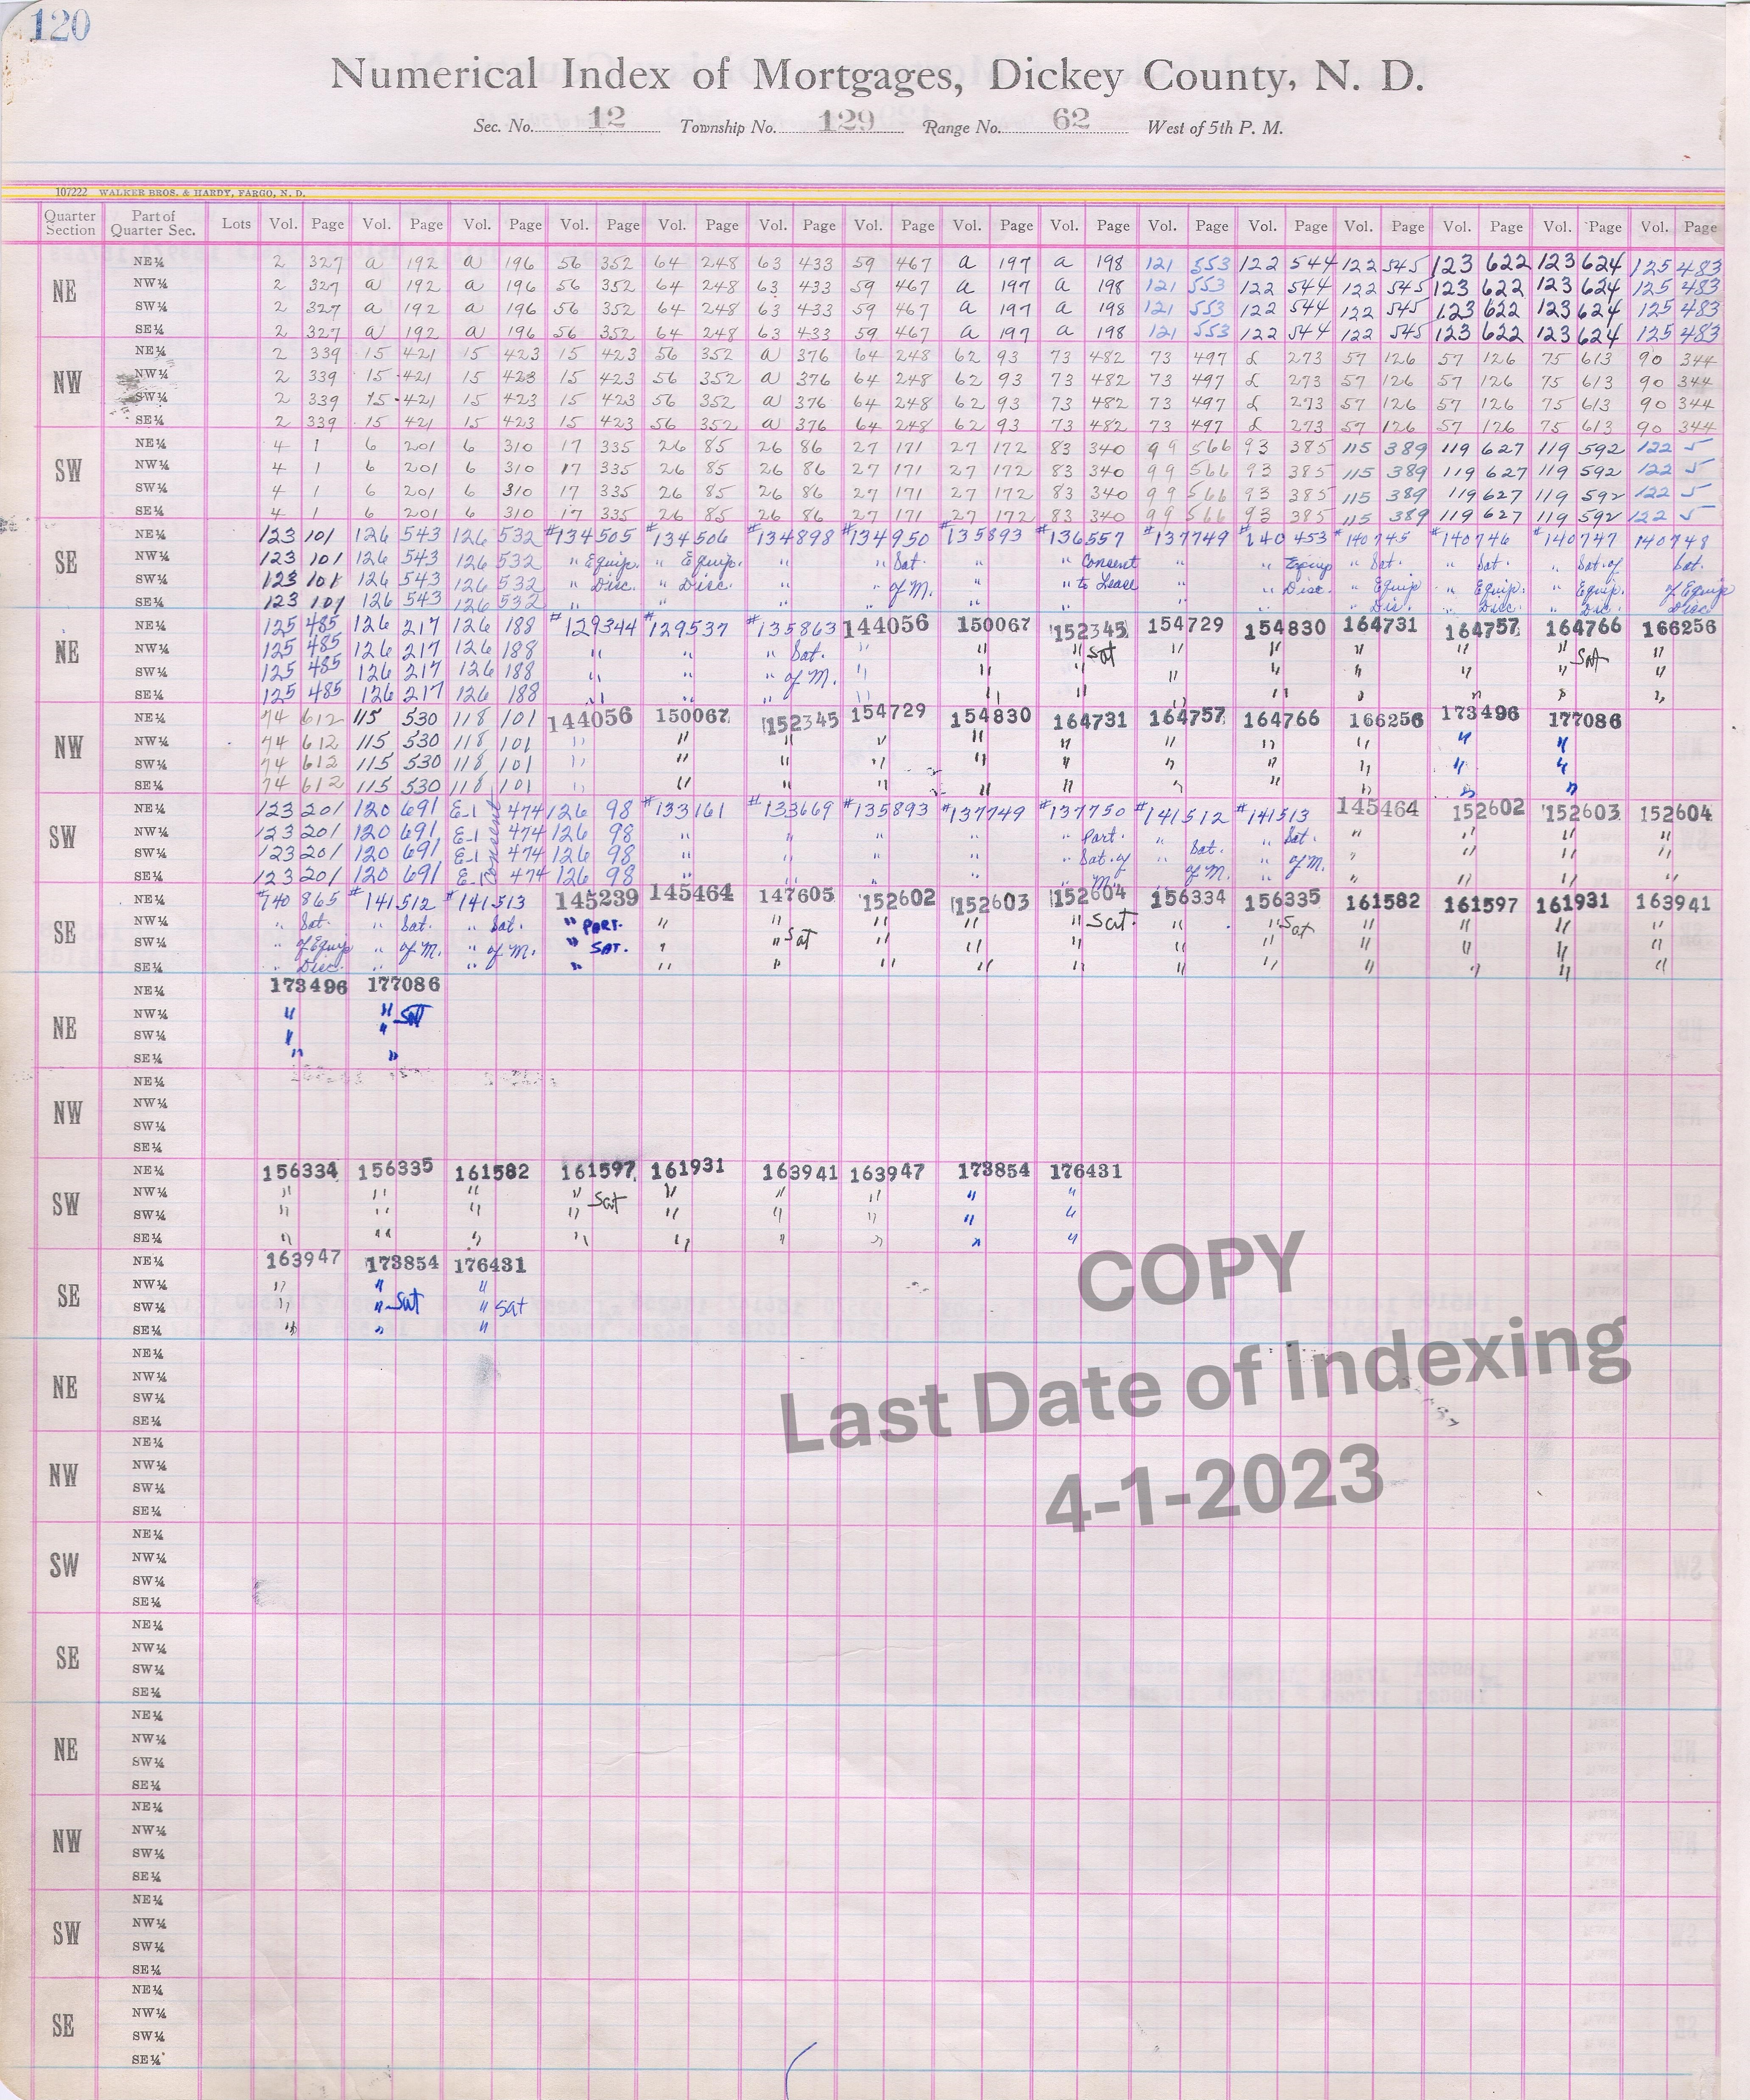 120
Numerical Index of Mortgages, Dickey County, N. D.
Sec. No. 12 Township No. 129 Range No. 62 West of 5th P. M.
107222 WALKER BROS. & HARDY, FARGO, N. D.
Quarter Section Part of Quarter Sec. Lots Vol. Page Vol. Page Vol. Page Vol. Page Vol. Page Vol. Page Vol. Page Vol. Page Vol. Page Vol. Page Vol. Page Vol. Page Vol. Page Vol. Page Vol. Page
NE
NE¼ 2 327 a 192 a 196 56 352 64 248 63 433 59 467 a 197 a 198 121 553 122 544 122 545 123 622 123 624 125 483
NW¼ 2 327 a 192 a 196 56 352 64 248 63 433 59 467 a 197 a 198 121 553 122 544 122 545 123 622 123 624 125 483
SW¼ 2 327 a 192 a 196 56 352 64 248 63 433 59 467 a 197 a 198 121 553 122 544 122 545 123 622 123 624 125 483
SE¼ 2 327 a 192 a 196 56 352 64 248 63 433 59 467 a 197 a 198 121 553 122 544 122 545 123 622 123 624 125 483
NW
NE¼ 2 339 15 421 15 423 15 423 56 352 a 376 64 248 62 93 73 482 73 497 d 273 57 126 57 126 75 613 90 344
NW¼ 2 339 15 421 15 423 15 423 56 352 a 376 64 248 62 93 73 482 73 497 d 273 57 126 57 126 75 613 90 344
SW¼ 2 339 15 421 15 423 15 423 56 352 a 376 64 248 62 93 73 482 73 497 d 273 57 126 57 126 75 613 90 344
SE¼ 2 339 15 421 15 423 15 423 56 352 a 376 64 248 62 93 73 482 73 497 d 273 57 126 57 126 75 613 90 344
SW
NE¼ 4 1 6 201 6 310 17 335 26 85 26 86 27 171 27 172 83 340 99 566 93 385 115 389 119 627 119 592 122 5
NW¼ 4 1 6 201 6 310 17 335 26 85 26 86 27 171 27 172 83 340 99 566 93 385 115 389 119 627 119 592 122 5
SW¼ 4 1 6 201 6 310 17 335 26 85 26 86 27 171 27 172 83 340 99 566 93 385 115 389 119 627 119 592 122 5
SE¼ 4 1 6 201 6 310 17 335 26 85 26 86 27 171 27 172 83 340 99 566 93 385 115 389 119 627 119 592 122 5
SE
NE¼ 123 101 126 543 126 532 #134505 #134506 #134898 #134950 #135893 #136557 #137749 #140453 #140745 #140746 #140747 140748
NW¼ 123 101 126 543 126 532 " Equip. " Equip. " " Sat. " " Consent " " Equip " Sat. " Sat. " Sat. of Sat.
SW¼ 123 101 126 543 126 532 " Disc. " Disc. " " of M. " " to Lease " " Disc. " Equip " Equip. " Equip. of Equip
SE¼ 123 101 126 543 126 532 " " " " " " " " " Dis. " Disc. " Disc. Disc
NE
NE¼ 125 485 126 217 126 188 #129344 #129537 #135863 144056 150067 152345 154729 154830 164731 164757 164766 166256
NW¼ 125 485 126 217 126 188 " " " Sat. " " " Sat " " " " " Sat "
SW¼ 125 485 126 217 126 188 " " " of M. " " " " " " " " "
SE¼ 125 485 126 217 126 188 " " " " " " " " " " " "
NW
NE¼ 74 612 115 530 118 101 144056 150067 152345 154729 154830 164731 164757 164766 166256 173496 177086
NW¼ 74 612 115 530 118 101 " " " " " " " " " " "
SW¼ 74 612 115 530 118 101 " " " " " " " " " " "
SE¼ 74 612 115 530 118 101 " " " " " " " " " " "
SW
NE¼ 123 201 120 691 E-1 474 126 98 #133161 #133669 #135893 #137749 #137750 #141512 #141513 145464 152602 152603 152604
NW¼ 123 201 120 691 E-1 474 126 98 " " " " " Part. " Sat. " Sat. " " " "
SW¼ 123 201 120 691 E-1 474 126 98 " " " " " Sat. of " of M. " of M. " " " "
SE¼ 123 201 120 691 E-1 474 126 98 " " " " " M. " " " "
Consent
SE
NE¼ #140865 #141512 #141513 145239 145464 147605 152602 152603 152604 156334 156335 161582 161597 161931 163941
NW¼ " Sat. " Sat. " Sat. " PART. " " " " " Sat. " " Sat " " " "
SW¼ " of Equip " of M. " of M. " SAT. " " Sat " " " " " " " " "
SE¼ " Disc. " " " " " " " " " " " " " "
NE
NE¼ 173496 177086
NW¼ " " Sat
SW¼ " "
SE¼ " "
NW
NE¼
NW¼
SW¼
SE¼
SW
NE¼ 156334 156335 161582 161597 161931 163941 163947 173854 176431
NW¼ " " " " Sat " " " " "
SW¼ " " " " " " " " "
SE¼ " " " " " " " " "
SE
NE¼ 163947 173854 176431
NW¼ " " "
SW¼ " " Sat " Sat
SE¼ " " "
COPY
Last Date of Indexing
4-1-2023
NE
NE¼
NW¼
SW¼
SE¼
NW
NE¼
NW¼
SW¼
SE¼
SW
NE¼
NW¼
SW¼
SE¼
SE
NE¼
NW¼
SW¼
SE¼
NE
NE¼
NW¼
SW¼
SE¼
NW
NE¼
NW¼
SW¼
SE¼
SW
NE¼
NW¼
SW¼
SE¼
SE
NE¼
NW¼
SW¼
SE¼